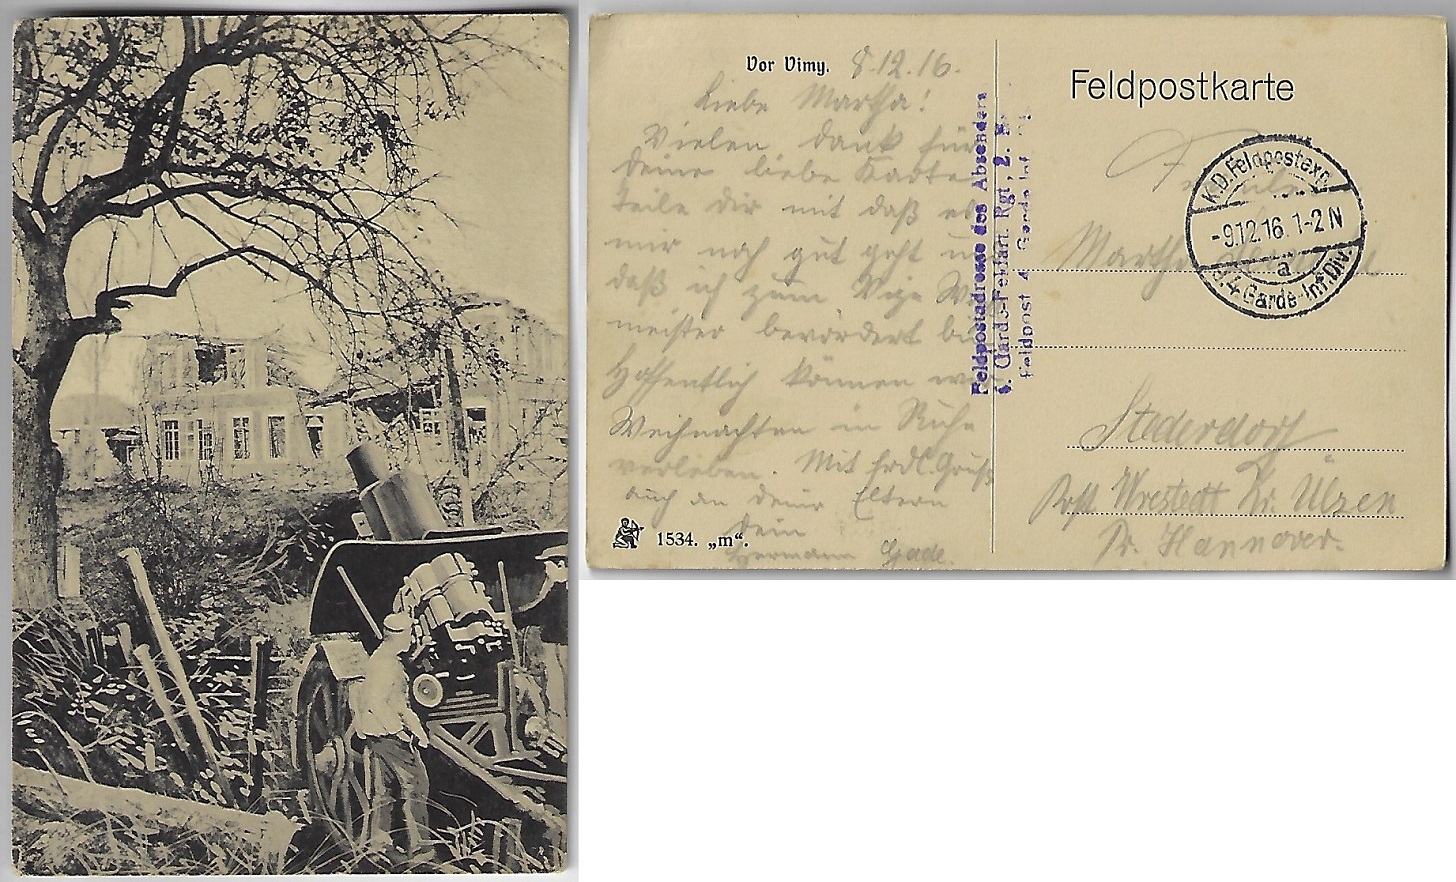 Vor Vimy. 8.12.16.
Liebe Martha!
Vielen Dank für
Deine liebe Karte
Teile dir mit daß es
mir noch gut geht u
daß ich zum Vize W
meister bevördert bi
Hoffentlich können wir
Weihnachten in Ruhe
verleben. Mit frdl. Gruß
auch an Deine Eltern
Dein
Hermann Gade.
1534. „m“.
Feldpostadresse des Absenders
Garde-Feldart. Rgt. 2.
Feldpost 4. Garde Inf.
Feldpostkarte
K.D. Feldpostexp.
-9.12.16. 1-2 N
a
d. 4. Garde-Inf. Div.
Martha
Stederdorf
Post Wrestedt Kr. Ülzen
Pr. Hannover.